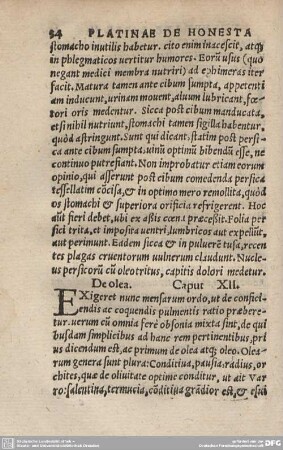 94 PLATINAE DE HONESTA
stomacho inutilis habetur. cito enim inacescit, atq;
in phlegmaticos uertitur humores. Eorũ usus (quo
negant medici membra nutriri) ad ephimeras iter
facit. Matura tamen ante cibum sumpta, appetenti
am inducunt, urinam mouent, aluum lubricant, fœ
tori oris medentur. Sicca post cibum manducata,
etsi nihil nutriunt, stomachi tamen sigilla habentur,
quòd astringunt. Sunt qui dicant, statim post persi
ca ante cibum sumpta, uinũ optimũ bibendũ esse, ne
continuo putrefiant. Non improbatur etiam eorum
opinio, qui asserunt post cibum comedenda persica
tessellatim cõcisa, & in optimo mero remollita, quòd
os stomachi & superiora orificia refrigerent. Hoc
aũt fieri debet, ubi ex aßis cœna præceßit. Folia per
sici trita, et imposita uentri, lumbricos aut expellũt,
aut perimunt. Eadem sicca & in puluerẽ tusa, recen
tes plagas cruentorum uulnerum claudunt. Nucle
us persicorũ cũ oleo tritus, capitis dolori medetur.
De olea. Caput XII.
EXigeret nunc mensarum ordo, ut de confici
endis ac coquendis pulmentis ratio præbere
tur. uerum cũ omnia ferè obsonia mixta sint, de qui
busdam simplicibus ad hanc rem pertinentibus, pri
us dicendum est, ac primum de olea atq; oleo. Olea
rum genera sunt plura: Conditiua, pausia: radius, or
chites, quæ de oliuitate optime conditur, ut ait Var
ro: salentina, termucia, cõditiua grãdior est, & esui